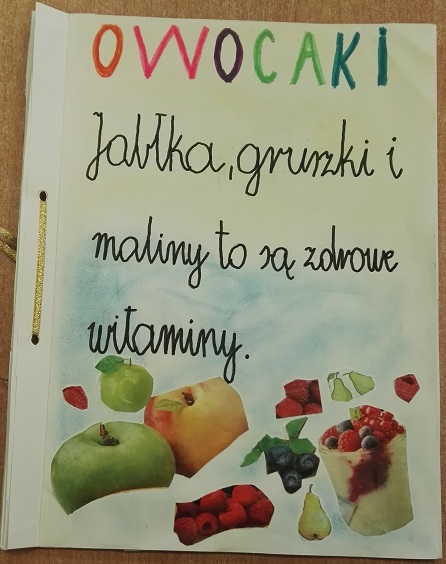 OWOCAKI
Jabłka, gruszki i
maliny to są zdrowe
witaminy.